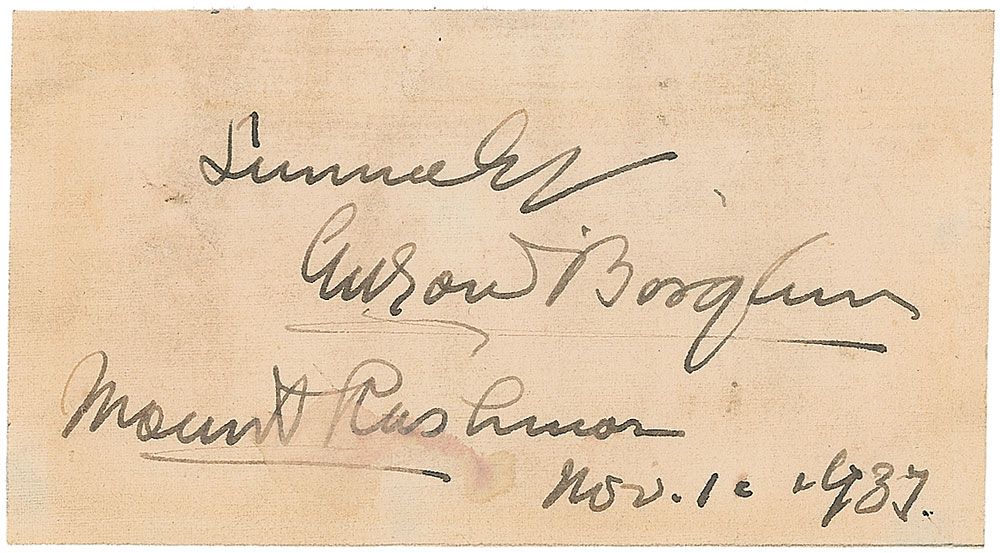 Sincerely
Gutzon Borglum
Mount Rushmore
Nov. 1. 1937.